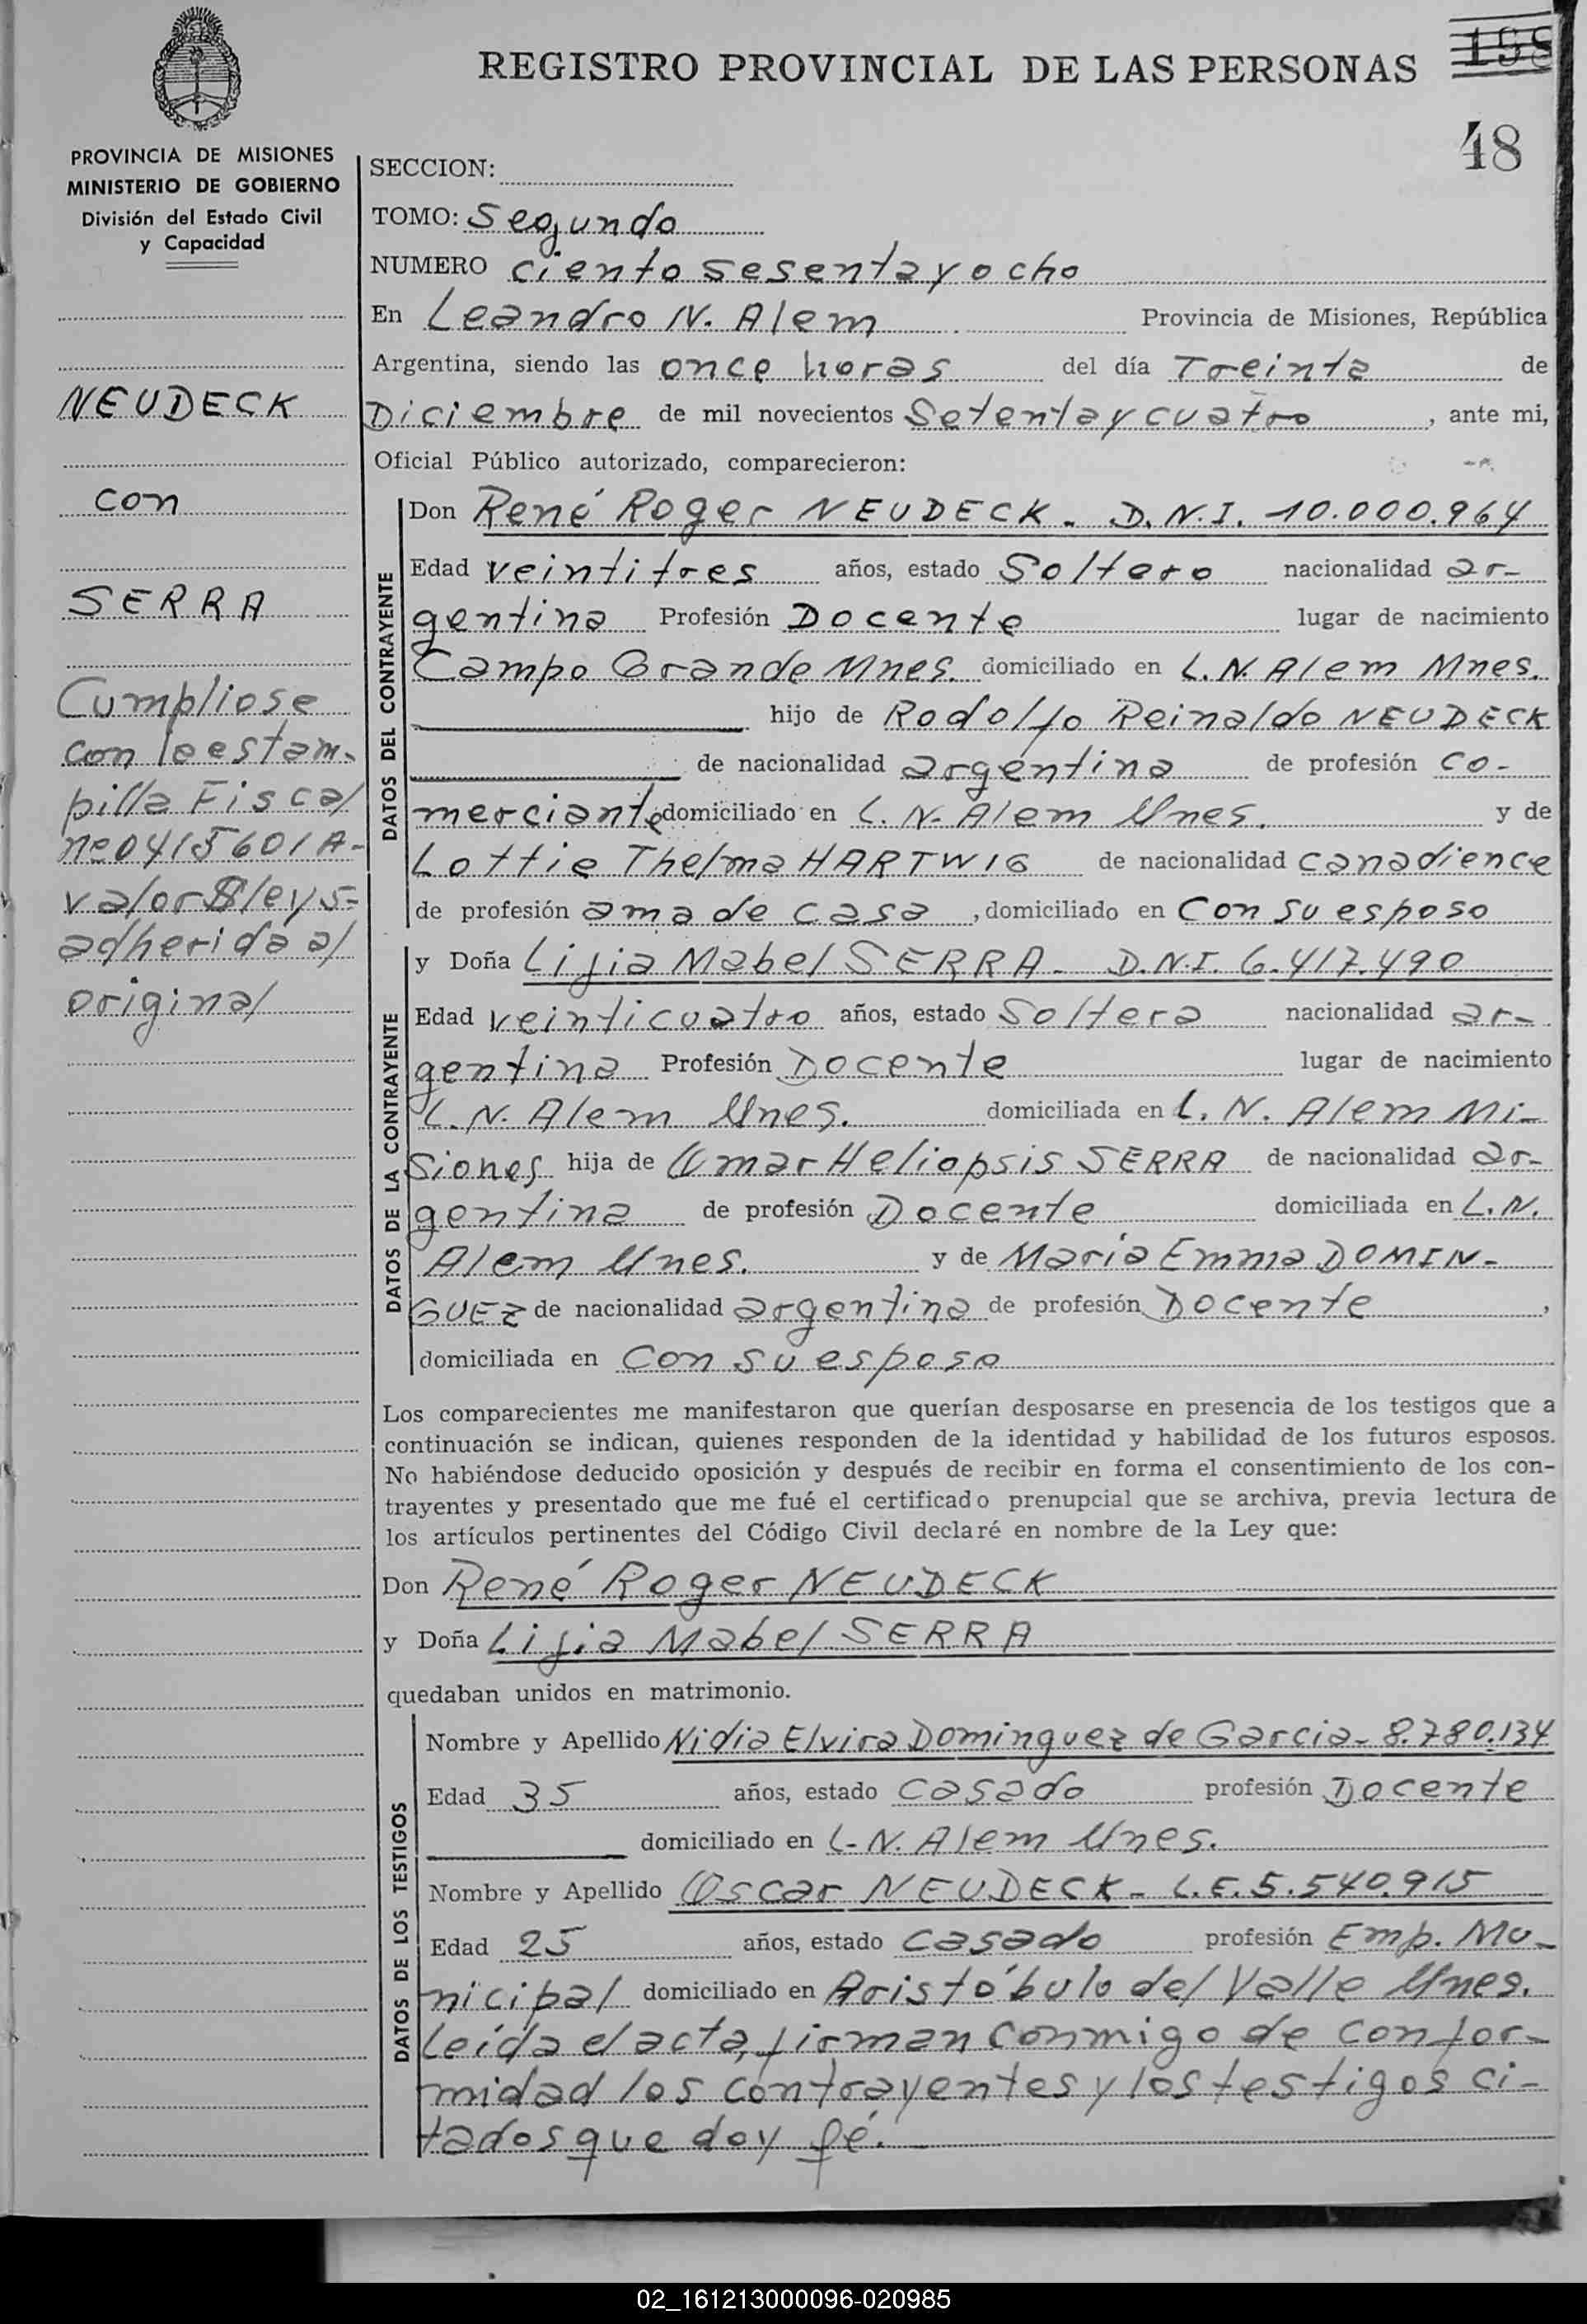 REGISTRO PROVINCIAL DE LAS PERSONAS
48
PROVINCIA DE MISIONES
MINISTERIO DE GOBIERNO
División del Estado Civil
y Capacidad
NEUDECK
con
SERRA
Cumpliose
con le estam-
pilla Fiscal
nº 0415601A-
valor $ ley 5=
adherida al
original
SECCION:
TOMO: Segundo
NUMERO ciento sesenta y ocho
En Leandro N. Alem Provincia de Misiones, República
Argentina, siendo las once horas del día Treinta de
Diciembre de mil novecientos Setenta y cuatro, ante mi,
Oficial Público autorizado, comparecieron:
DATOS DEL CONTRAYENTE
Don René Roger NEUDECK. D.N.I. 10.000.964
Edad veintitres años, estado Soltero nacionalidad ar-
gentina Profesión Docente lugar de nacimiento
Campo Grande Mnes. domiciliado en L.N. Alem Mnes.
hijo de Rodolfo Reinaldo NEUDECK
de nacionalidad argentina de profesión co-
merciante domiciliado en L.N. Alem Mnes. y de
Lottie Thelma HARTWIG de nacionalidad canadience
de profesión ama de casa, domiciliado en Con su esposo
DATOS DE LA CONTRAYENTE
y Doña Lijia Mabel SERRA - D.N.I. 6.417.490
Edad veinticuatro años, estado Soltera nacionalidad ar-
gentina Profesión Docente lugar de nacimiento
L.N. Alem Mnes. domiciliada en L.N. Alem Mi-
siones hija de Omar Heliopsis SERRA de nacionalidad ar-
gentina de profesión Docente domiciliada en L.N.
Alem Mnes. y de María Emma DOMIN-
GUEZ de nacionalidad argentina de profesión Docente,
domiciliada en Con su esposo
Los comparecientes me manifestaron que querían desposarse en presencia de los testigos que a
continuación se indican, quienes responden de la identidad y habilidad de los futuros esposos.
No habiéndose deducido oposición y después de recibir en forma el consentimiento de los con-
trayentes y presentado que me fué el certificado prenupcial que se archiva, previa lectura de
los artículos pertinentes del Código Civil declaré en nombre de la Ley que:
Don René Roger NEUDECK
y Doña Lijia Mabel SERRA
quedaban unidos en matrimonio.
DATOS DE LOS TESTIGOS
Nombre y Apellido Nidia Elvira Dominguez de Garcia - 8.780.134
Edad 35 años, estado casado profesión Docente
domiciliado en L-N. Alem Mnes.
Nombre y Apellido Oscar NEUDECK - L.E. 5.540.915
Edad 25 años, estado casado profesión Emp. Mu-
nicipal domiciliado en Aristóbulo del Valle Mnes.
Leída el acta, firman conmigo de confor-
midad los contrayentes y los testigos ci-
tados que doy fé.
02_161213000096-020985